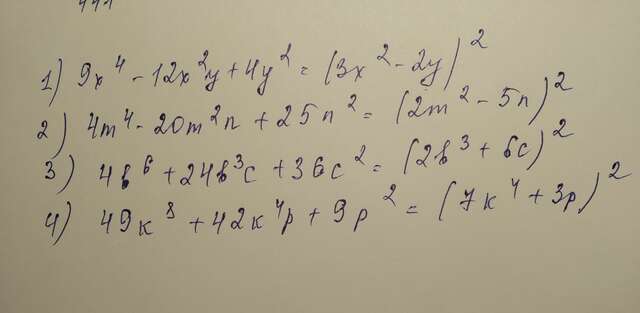 1) 9x⁴ - 12x²y + 4y² = (3x² - 2y)²
2) 4m⁴ - 20m²n + 25n² = (2m² - 5n)²
3) 4b⁶ + 24b³c + 36c² = (2b³ + 6c)²
4) 49k⁸ + 42k⁴p + 9p² = (7k⁴ + 3p)²